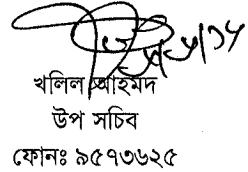 খলিল আহমদ
উপ সচিব
ফোনঃ ৯৫৭৩৬২৫